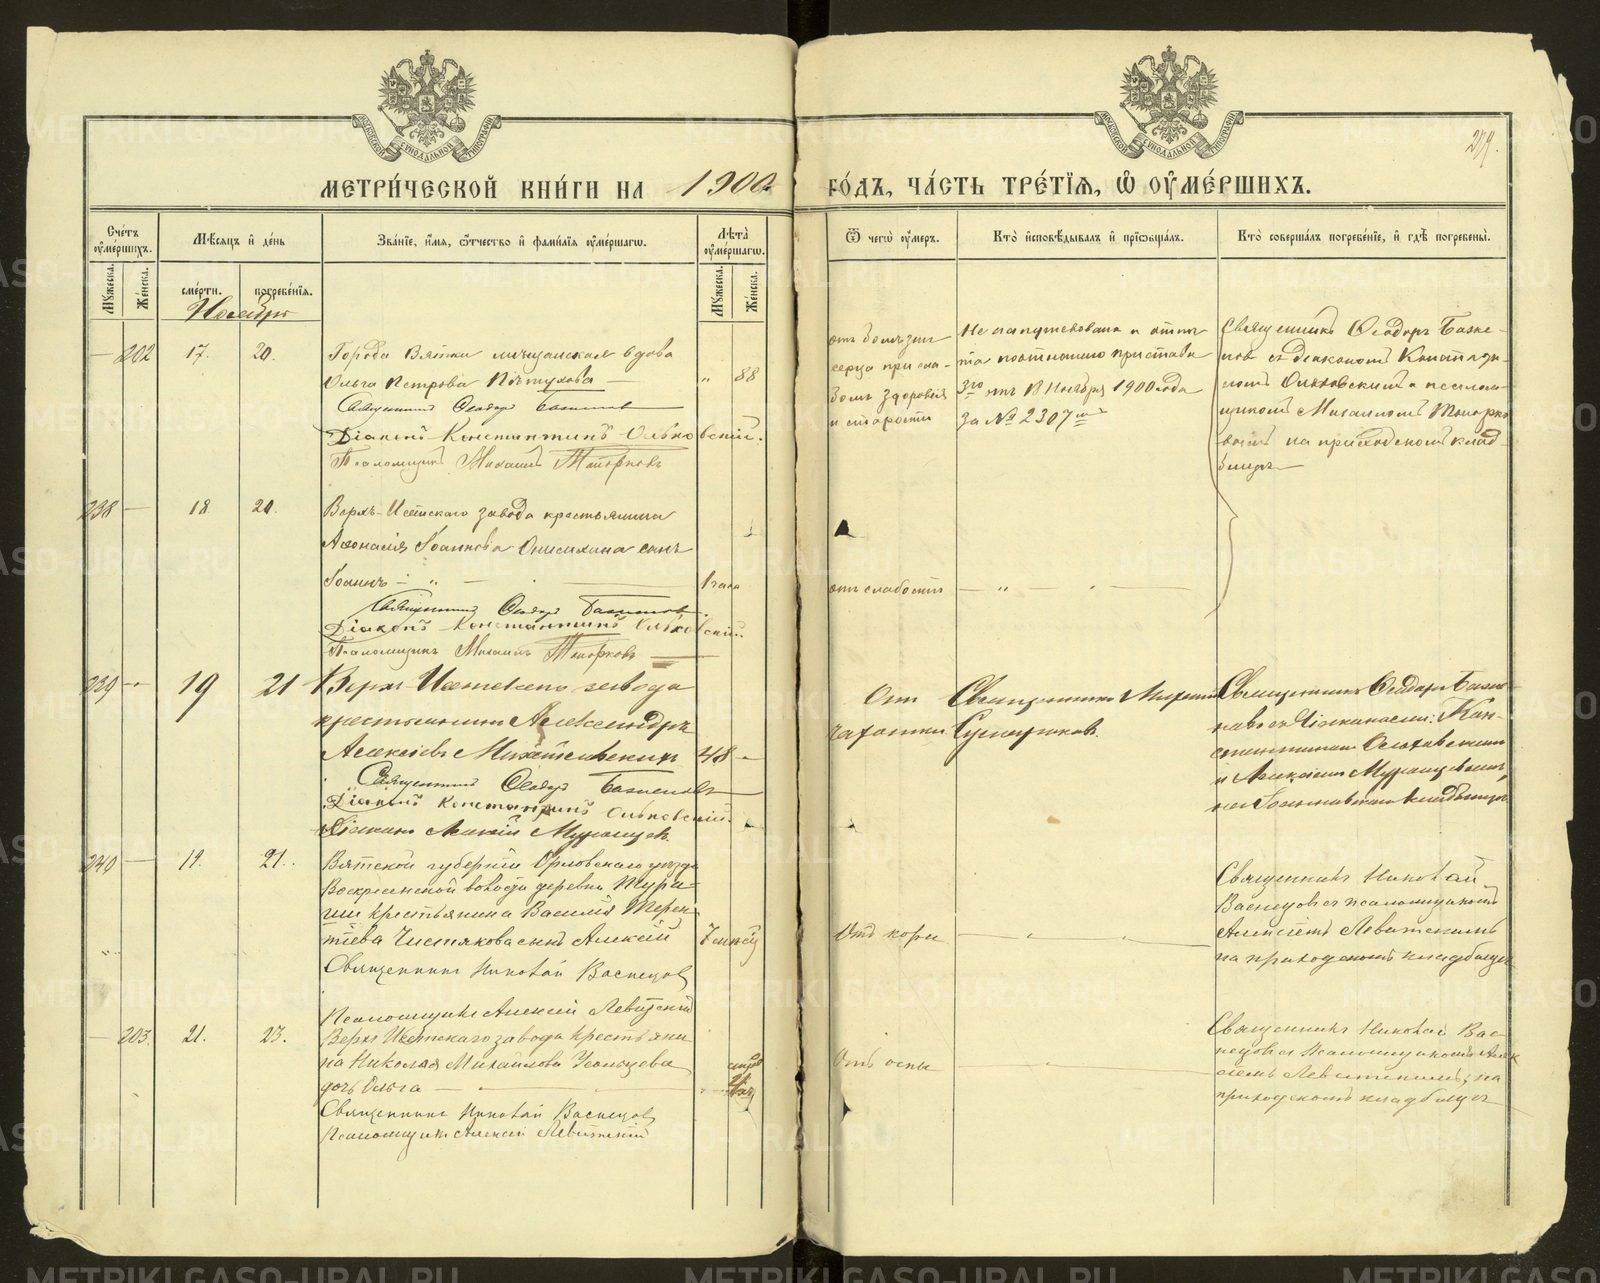 МОСКОВСКОЙ СѴНОДАЛЬНОЙ ТИПОГРАФІИ
МОСКОВСКОЙ СѴНОДАЛЬНОЙ ТИПОГРАФІИ
МЕТРИ́ЧЕСКОЙ КНИ́ГИ НА 1900 ГО́ДЪ, ЧА́СТЬ ТРЕ́ТІѦ, Ѡ҆ ОУ҆МЕ́РШИХЪ.
Сче́тъ оу҆ме́ршихъ.
Мꙋ́жеска. Же́нска.
Мѣ́сѧцъ и҆ де́нь
сме́рти. погребе́нїѧ.
Зва́нїе, и҆́мѧ, ѻ҆́тчество и҆ фами́лїѧ оу҆ме́ршагѡ.
Лѣ́та оу҆ме́ршагѡ.
Мꙋ́жеска. Же́нска.
Ѿ чегѡ̀ оу҆́меръ.
Кто̀ и҆сповѣ́дывалъ и҆ прїѡбща́лъ.
Кто̀ соверша́лъ погребе́нїе, и҆ гдѣ̀ погребены̀.
Ноябрь
— 202 17. 20.
Города Вятки мѣщанская вдова
Ольга Петрова Пѣтухова —
„ 88
Священникъ Ѳеодоръ
Діаконъ Константинъ Ольховскій.
Псаломщикъ Михаилъ Топорковъ
отъ болѣзни
сердца при сла-
бомъ здоровьи
и старости
Не напутствована
3го отъ 18 Ноября 1900 года
за № 2307
Священникъ Ѳеодоръ
съ діакономъ Констан
Ольховскимъ и псалом
щикомъ Михаиломъ Топорко
вымъ на приходскомъ клад-
бищѣ —
238 — 18 20.
Верхъ-Исетскаго завода крестьянина
Аѳонасія Іоаннова Онисимина сынъ
Іоаннъ — „ —
1 часа
Священникъ Ѳеодоръ
Діаконъ Константинъ Ольховскій.
Псаломщикъ Михаилъ Топорковъ —
отъ слабости
— „ — „ —
239 — 19 21
Верхъ Исетскаго завода
крестьянинъ Александръ
Алексѣевъ
48 —
Священникъ Ѳеодоръ
Діаконъ Константинъ Ольховскій.
Діаконъ Алексій
От
чахотки
Священникъ
Священникъ Ѳеодоръ
съ Діаконами: Кон-
стантиномъ Ольховскимъ
и Алексіемъ
на Іоанновскомъ кладбищѣ
240 — 19. 21.
Вятской губерніи Орловскаго уѣзда
Воскресенской волости деревни Тури-
чи крестьянина Василія Терен-
тіева Чистякова сынъ Алексій
7 мѣсяц
Священникъ Николай Васнецовъ
Псаломщикъ Алексій Левитскій
Отъ кори
Священникъ Николай
Васнецовъ съ псаломщикомъ
Алексіемъ Левитскимъ
на приходскомъ кладбищѣ
— 203. 21. 23.
Верхъ Исетскаго завода крестьяни
на Николая Михайлова Усольцева
дочь Ольга —
Священникъ Николай Васнецовъ
Псаломщикъ Алексій Левитскій
Отъ оспы
Священникъ Николай Вас-
нецовъ съ Псаломщикомъ Алек
сіемъ Левитскимъ, на
приходскомъ кладбищѣ
METRIKI.GASO-URAL.RU